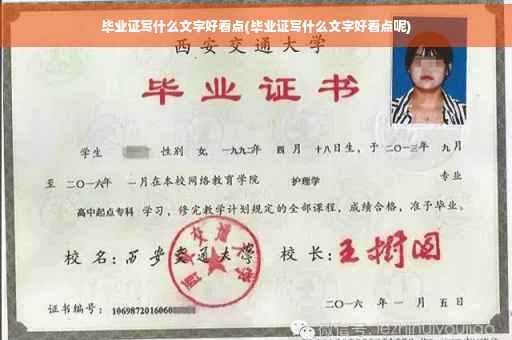 毕业证写什么文字好看点(毕业证写什么文字好看点呢)
西安交通大学
毕业证书
学生 性别 女, 一九九二年 四月 十八日生, 于二〇一三年 九月
至 二〇一六年 一月在本校网络教育学院 护理学 专业
高中起点专科 学习, 修完教学计划规定的全部课程, 成绩合格, 准予毕业。
校名: 西安交通大学 校长: 王树国
西安交通大学
证书编号: 1069872016060
二〇一六年 一月五日
微信号: jezhihuiyoujiao